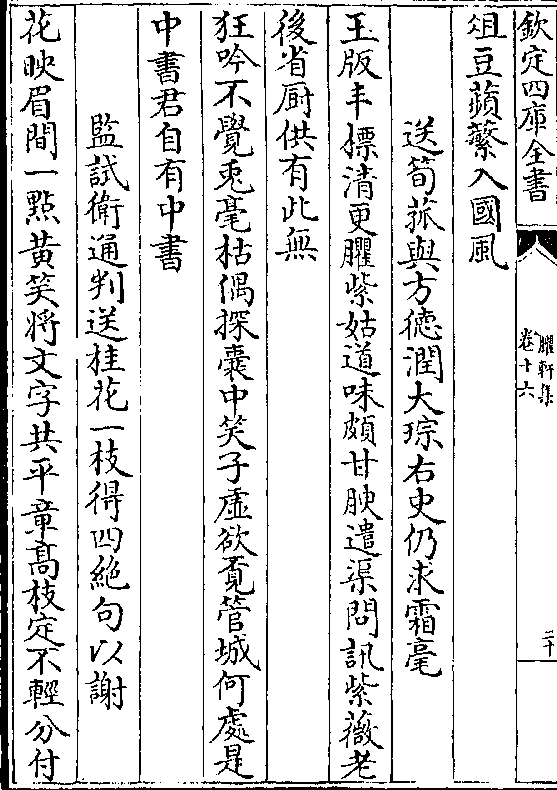 欽定四庫全書
臞軒集
卷十六
二十
俎豆蘋蘩入國風
送筍菰與方德潤大琮右史仍求霜毫
玉版丰摽清更臞紫姑道味頗甘腴遣渠問訊紫薇老
後省厨供有此無
狂吟不覺兎毫枯偶探囊中笑子虚欲覔管城何處是
中書君自有中書
監試衛通判送桂花一枝得四絶句以謝
花映眉間一點黄笑將文字共平章髙枝定不輕分付